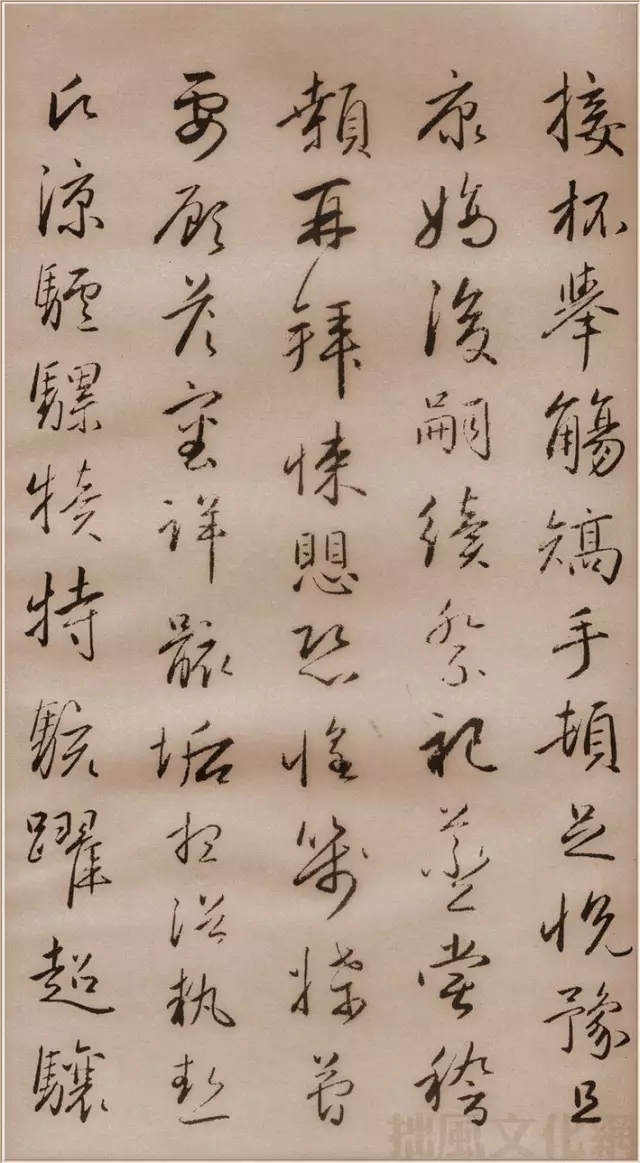 接杯舉觴矯手頓足悅豫且
康嫡後嗣續祭祀蒸嘗稽
顙再拜悚愳恐惶箋牒簡
要顧答審詳骸垢想浴執熱
願涼驢騾犢特駭躍超驤
拙風文化網